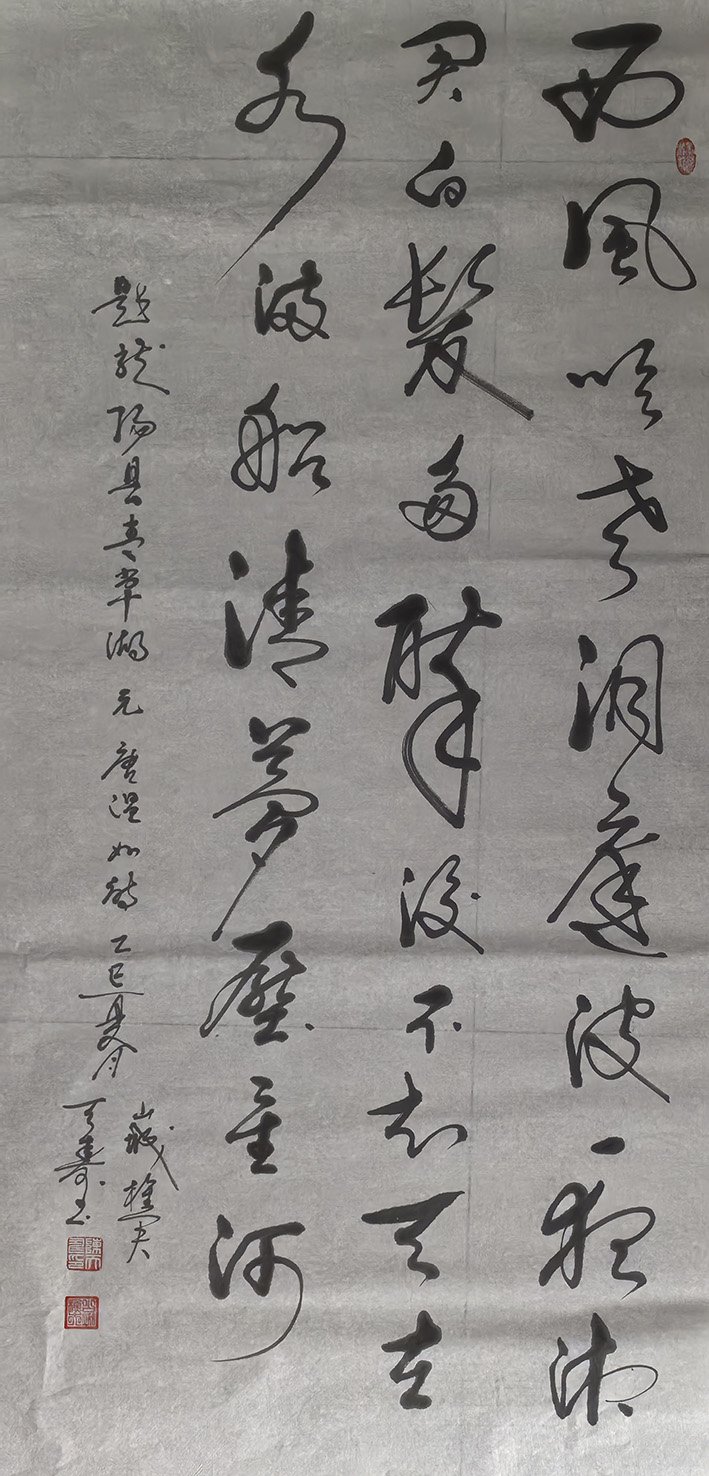 西風吹老洞庭波一夜湘
君白髮多醉後不知天在
水滿船清夢壓星河
題龍陽縣青草湖元唐溫如詩乙巳夏月
樵夫
天壽书